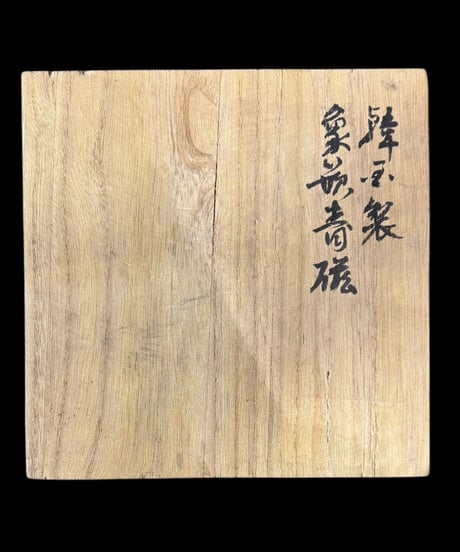 韓国製
象嵌青磁